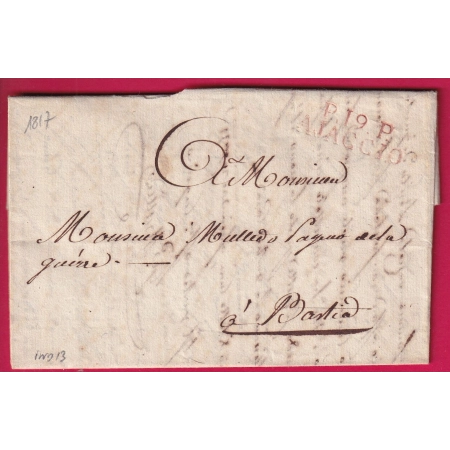 1817
P.19.P.
AJACCIO
A Monsieur
Monsieur Mulledo payeur de la
guèrre
à Bastia
ind 13